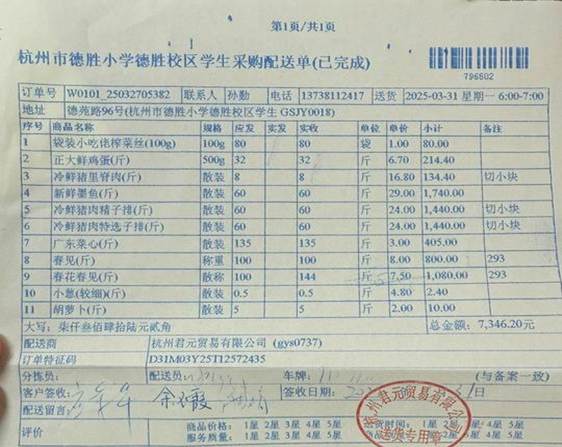 第1页/共1页
杭州市德胜小学德胜校区学生采购配送单(已完成)
796502
订单号 W0101_25032705382 联系人 孙勤 电话 13738112417 送货 2025-03-31 星期一 6:00-7:00
地址 德苑路96号(杭州市德胜小学德胜校区学生 GSJY0018)
序号 商品名称 规格 应发 实发 实收 单位 单价 小计 备注
1 袋装小吃佬榨菜丝(100g) 100g 80 80 袋 1.00 80.00
2 正大鲜鸡蛋(斤) 500g 32 32 斤 6.70 214.40
3 冷鲜猪里脊肉(斤) 散装 8 8 斤 16.80 134.40 切小块
4 新鲜墨鱼(斤) 散装 60 60 斤 29.00 1,740.00
5 冷鲜猪肉精子排(斤) 散装 60 60 斤 24.00 1,440.00 切小块
6 冷鲜猪肉特选子排(斤) 散装 60 60 斤 24.00 1,440.00 切小块
7 广东菜心(斤) 散装 135 135 斤 3.00 405.00
8 春见(斤) 称重 100 100 斤 8.00 800.00 293
9 春花春见(斤) 散称 100 144 斤 7.50 1,080.00 293
10 小葱(较细)(斤) 散装 0.5 0.5 斤 4.80 2.40
11 胡萝卜(斤) 散装 5 5 斤 2.00 10.00
大写: 柒仟叁佰肆拾陆元贰角 总金额: 7,346.20元
配送商 杭州君元贸易有限公司 (gys0737)
订单特征码 D31M03Y25T12572435
分拣员: 配送员: 车牌: (与备案一致)
客户签收: 签收日期:
配送留言:
杭州君元贸易有限公司
送货专用章
评价 商品价格: 1星 2星 3星 4星 5星 送货时间: 1星 2星 3星 4星 5星
服务质量: 1星 2星 3星 4星 5星